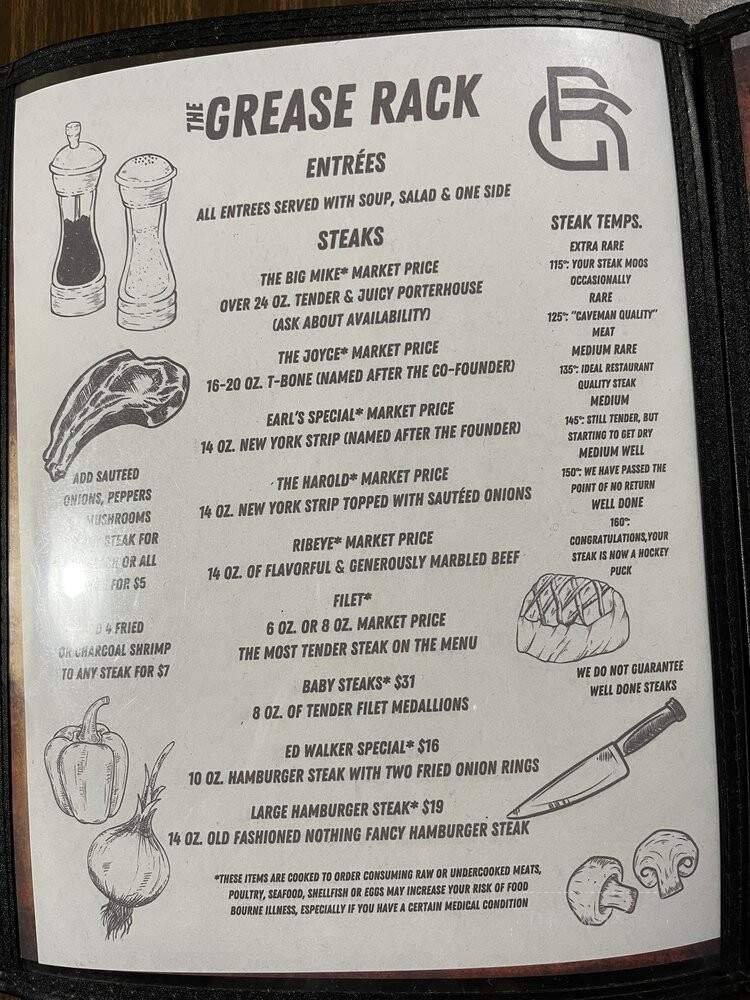 THE GREASE RACK
GR
ENTRÉES
ALL ENTREES SERVED WITH SOUP, SALAD & ONE SIDE
STEAKS
THE BIG MIKE* MARKET PRICE
OVER 24 OZ. TENDER & JUICY PORTERHOUSE
(ASK ABOUT AVAILABILITY)
THE JOYCE* MARKET PRICE
16-20 OZ. T-BONE (NAMED AFTER THE CO-FOUNDER)
EARL'S SPECIAL* MARKET PRICE
14 OZ. NEW YORK STRIP (NAMED AFTER THE FOUNDER)
THE HAROLD* MARKET PRICE
14 OZ. NEW YORK STRIP TOPPED WITH SAUTÉED ONIONS
RIBEYE* MARKET PRICE
14 OZ. OF FLAVORFUL & GENEROUSLY MARBLED BEEF
FILET*
6 OZ. OR 8 OZ. MARKET PRICE
THE MOST TENDER STEAK ON THE MENU
BABY STEAKS* $31
8 OZ. OF TENDER FILET MEDALLIONS
ED WALKER SPECIAL* $16
10 OZ. HAMBURGER STEAK WITH TWO FRIED ONION RINGS
LARGE HAMBURGER STEAK* $19
14 OZ. OLD FASHIONED NOTHING FANCY HAMBURGER STEAK
*THESE ITEMS ARE COOKED TO ORDER CONSUMING RAW OR UNDERCOOKED MEATS,
POULTRY, SEAFOOD, SHELLFISH OR EGGS MAY INCREASE YOUR RISK OF FOOD
BOURNE ILLNESS, ESPECIALLY IF YOU HAVE A CERTAIN MEDICAL CONDITION
ADD SAUTEED
ONIONS, PEPPERS
MUSHROOMS
STEAK FOR
OR ALL
FOR $5
4 FRIED
OR CHARCOAL SHRIMP
TO ANY STEAK FOR $7
STEAK TEMPS.
EXTRA RARE
115°: YOUR STEAK MOOS
OCCASIONALLY
RARE
125°: "CAVEMAN QUALITY"
MEAT
MEDIUM RARE
135°: IDEAL RESTAURANT
QUALITY STEAK
MEDIUM
145°: STILL TENDER, BUT
STARTING TO GET DRY
MEDIUM WELL
150°: WE HAVE PASSED THE
POINT OF NO RETURN
WELL DONE
160°:
CONGRATULATIONS,YOUR
STEAK IS NOW A HOCKEY
PUCK
WE DO NOT GUARANTEE
WELL DONE STEAKS